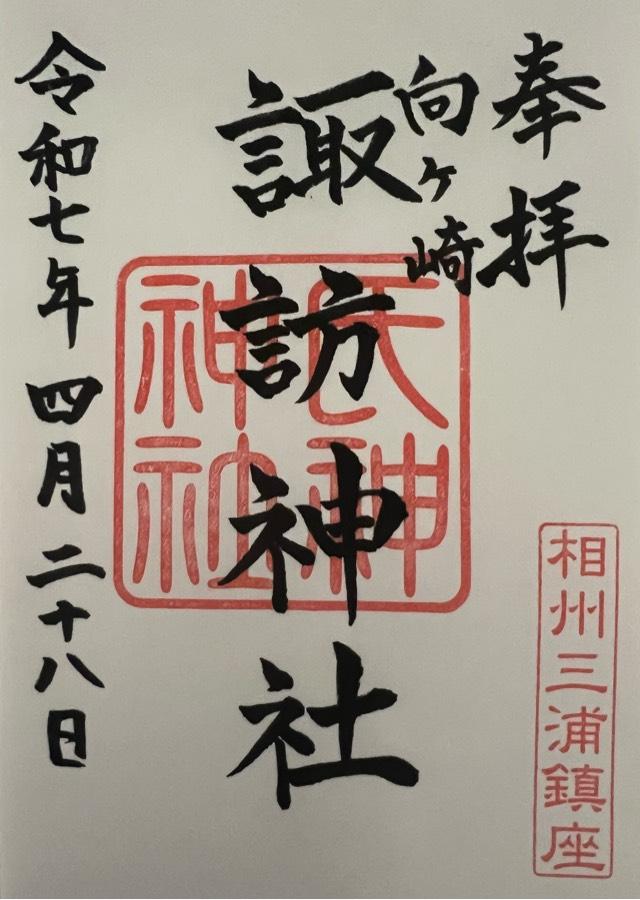 奉拝
向ヶ崎
諏訪神社
令和七年四月二十八日
氏神
神社
相州三浦鎮座